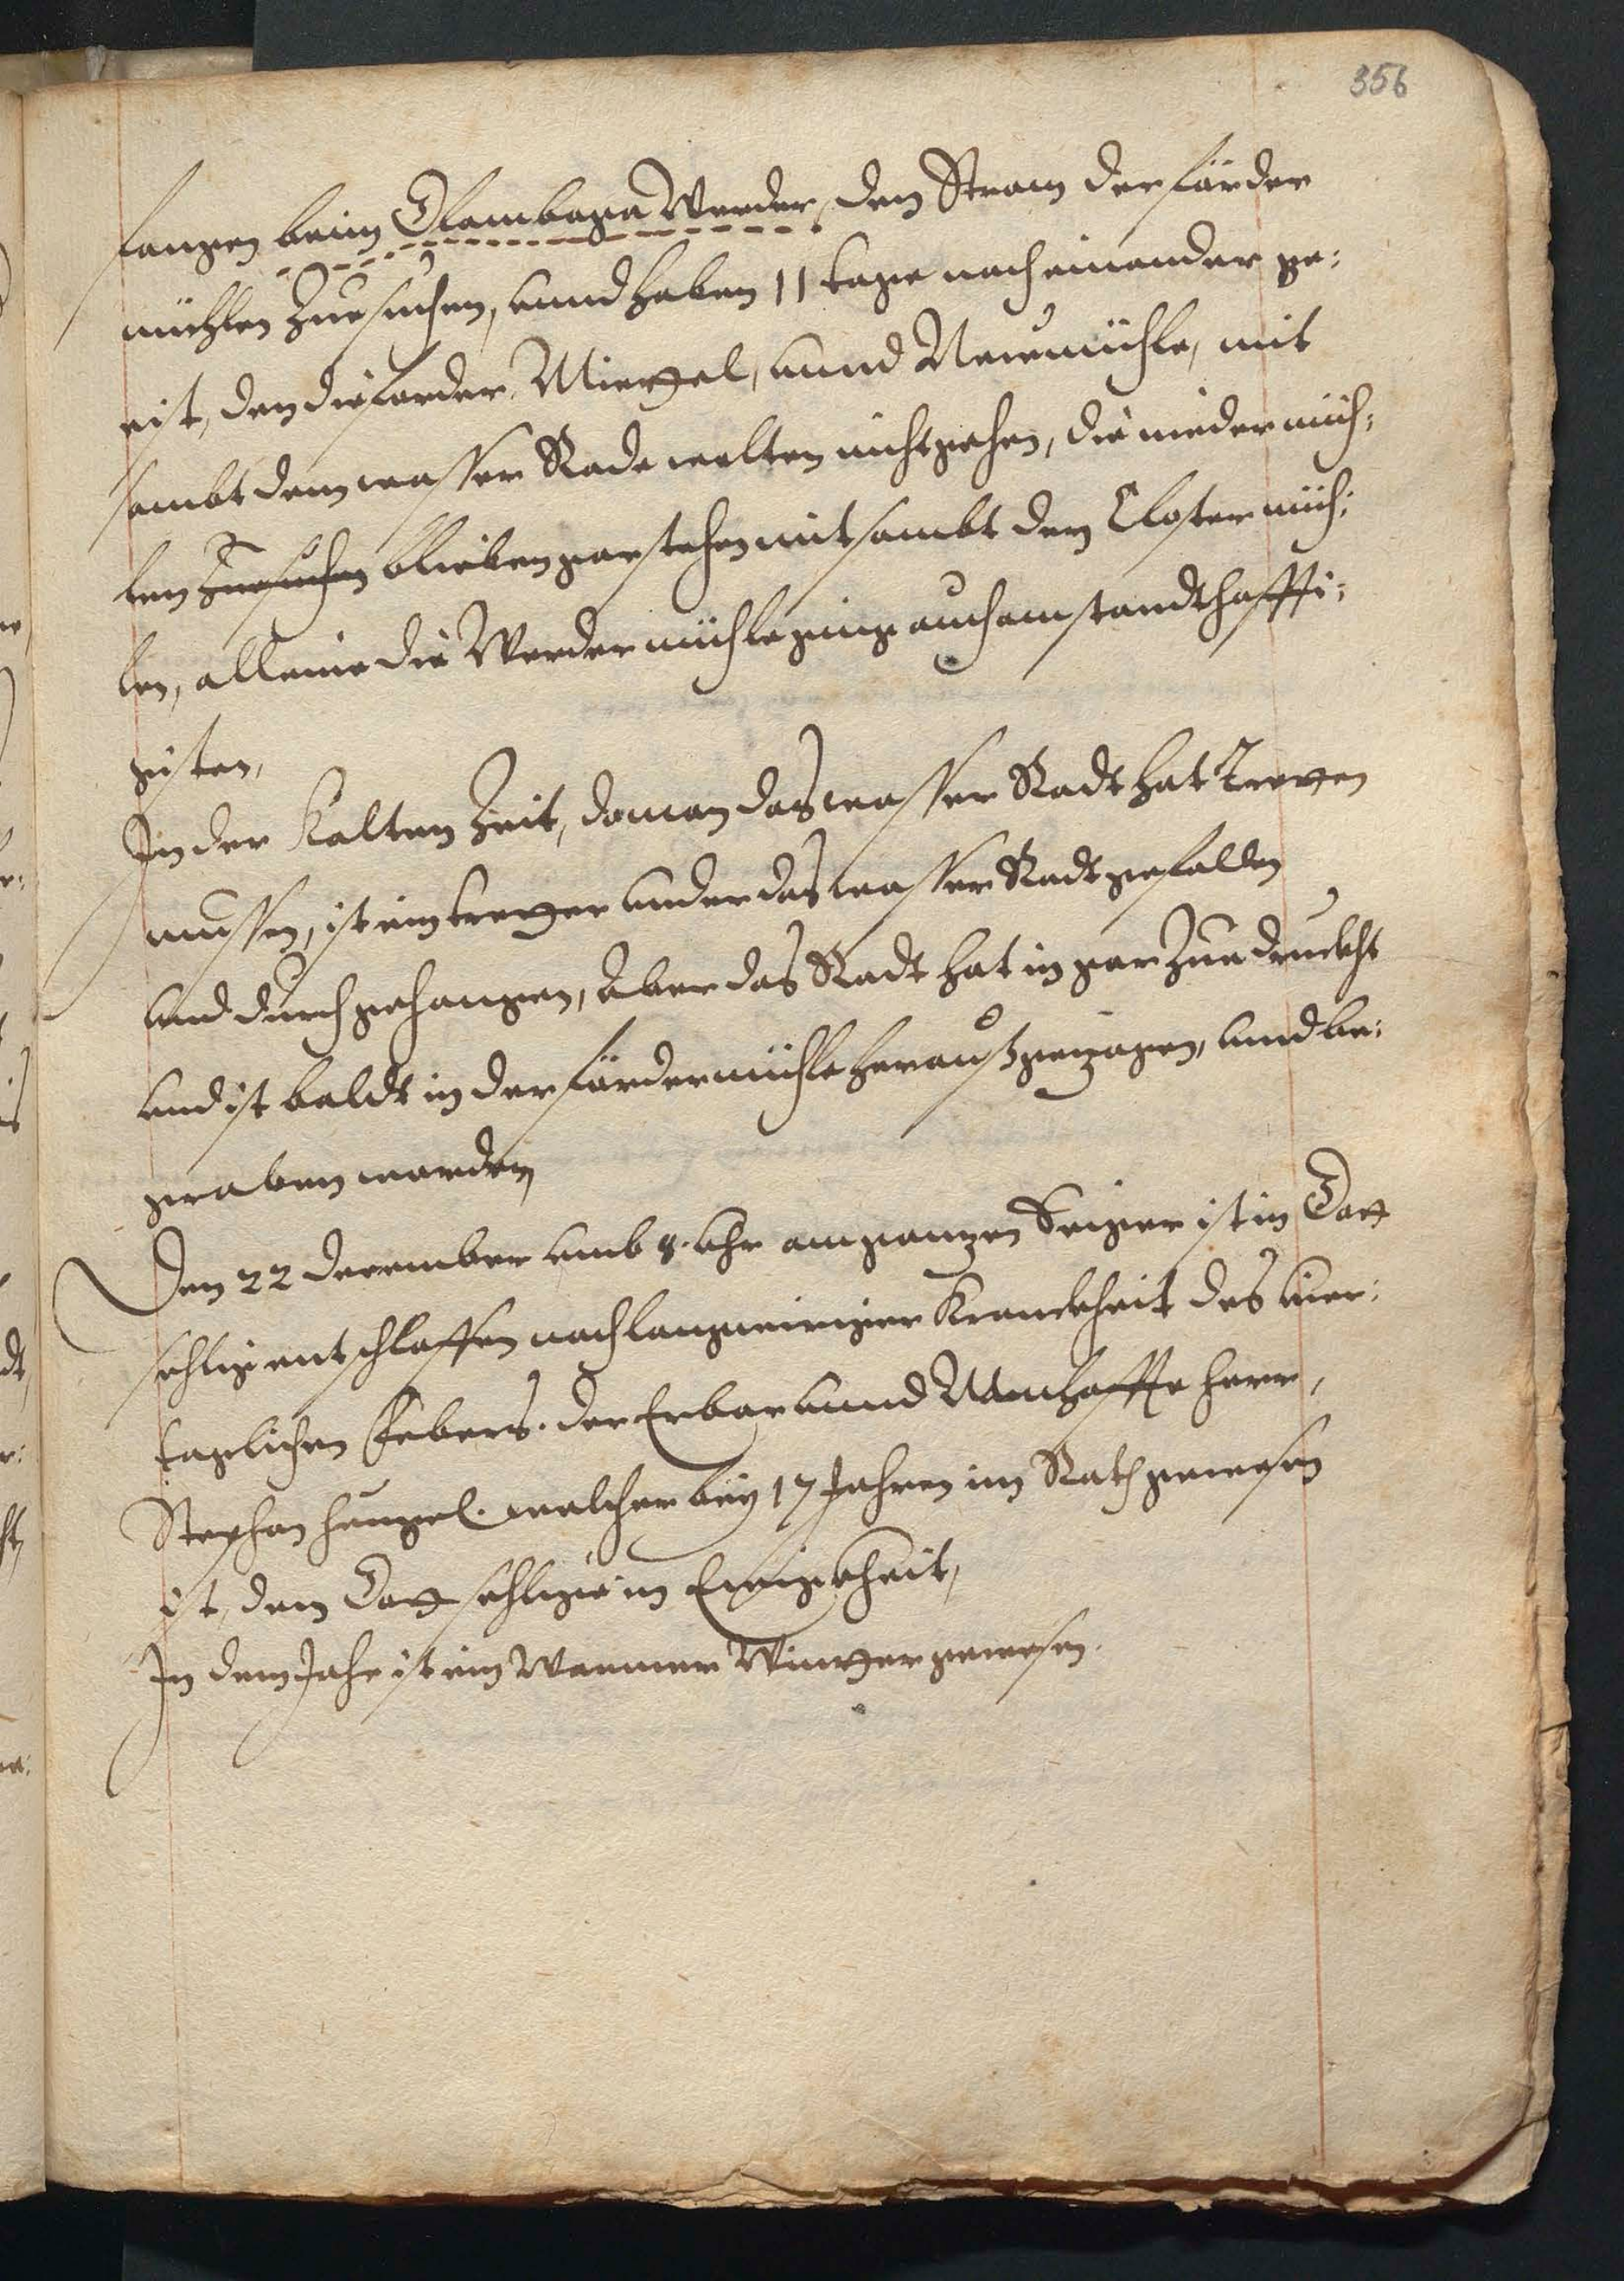 356
fangen beim Olambaga Werder, den Strom der förder
mühlen Zuesuchen, unnd haben 11 tage nacheinander ge:
eist, den die forder, Mittel, unnd Neuemühle, mit
sambt dem wasser Rade wolten nicht gehen, die nieder müh:
len Zuesuchen blieben gar stehen mit sambt den Closter müh:
len, alleine die Werder mühle ginge auch am standthaffti:
gisten,
In der Kalten Zeit, do man das wasser Radt hat Treten
mussen, ist ein treter under das wasser Radt gefallen
und durchgehangen, Aber das Radt hat in gar Zue druckht
und ist baldt in der förder mühle heraus gezogen, und be:
graben worden
Den 22 December umb 8. uhr am ganzen Seiger ist in Gott
sehlig entschlaffen nach langweiriger Kranckheit des vier:
taglichen Febers. der Erbar unnd Namhaffte herr,
Stephan welcher bey 17 Jahren im Rath gewesen
ist, dem Gott sehlige in Ewigkheit,
In dem Jahr ist ein Warmer Winter gewesen.